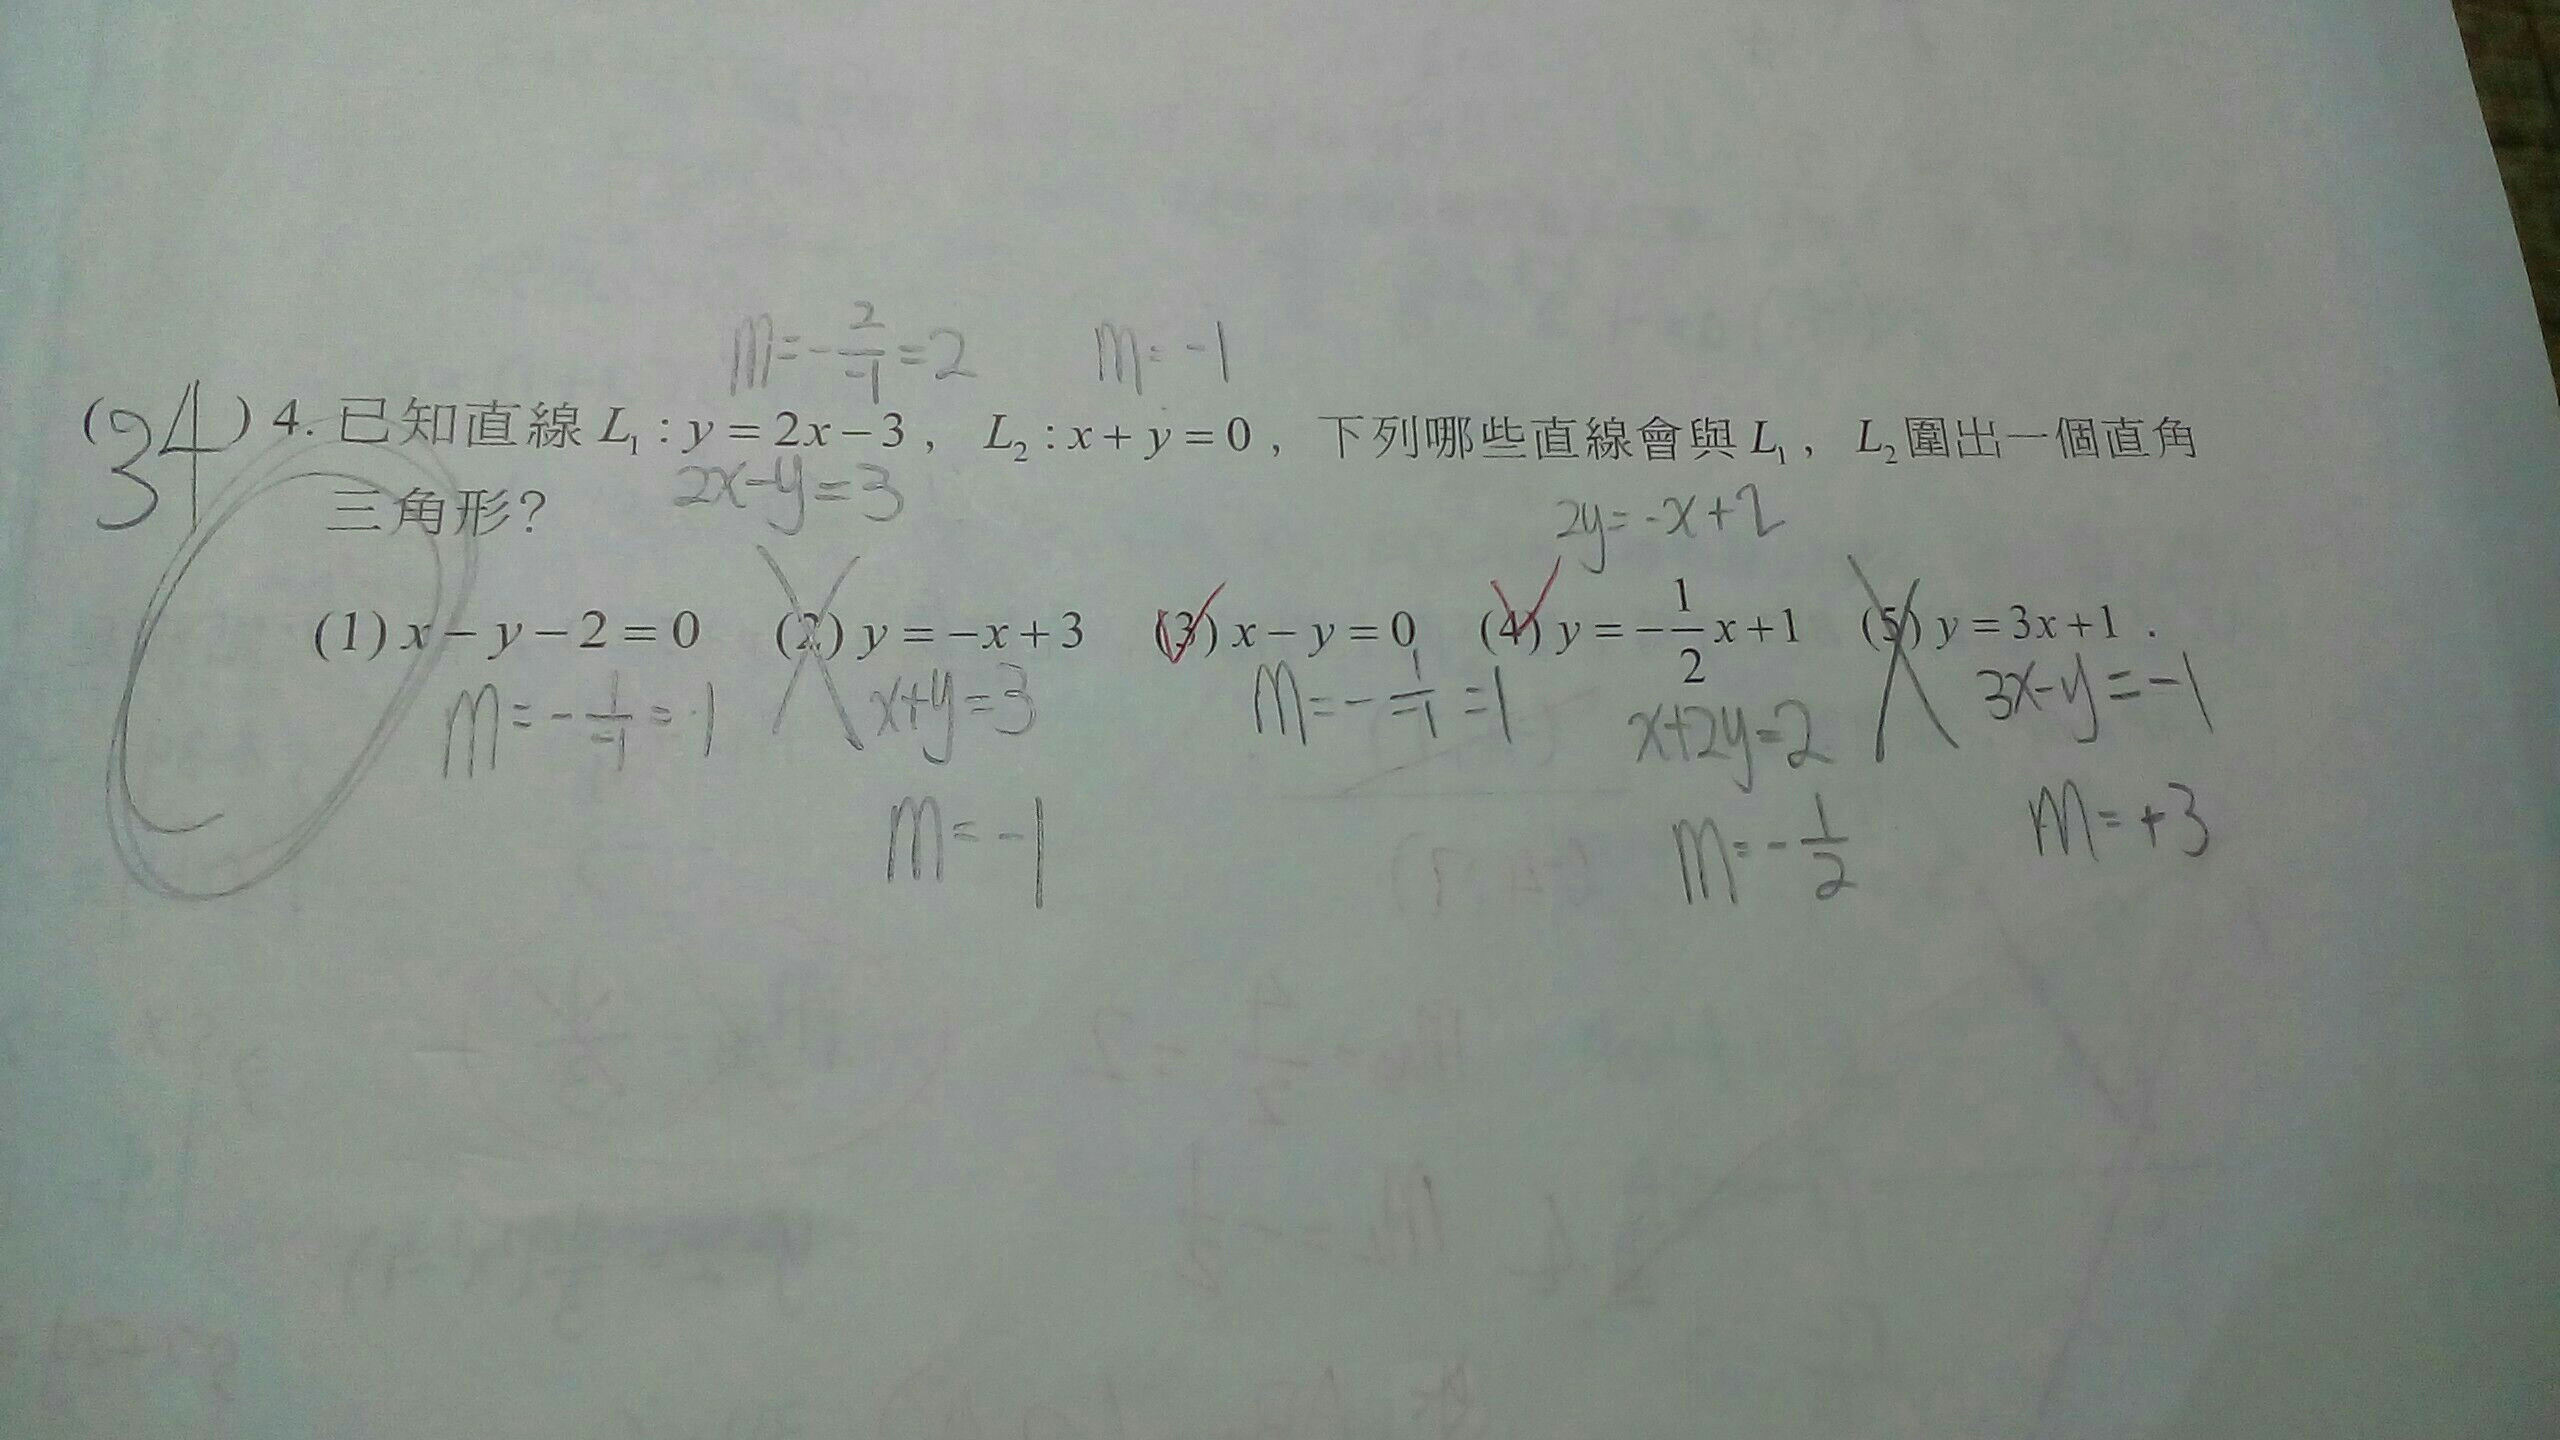 m=-2/-1=2 m=-1
(34) 4. 已知直線 L₁ : y = 2x − 3 ， L₂ : x + y = 0 ， 下列哪些直線會與 L₁ ， L₂ 圍出一個直角
2x-y=3
三角形?
2y=-x+2
(1) x − y − 2 = 0 (2) y = −x + 3 (3) x − y = 0 (4) y = −1/2 x + 1 (5) y = 3x + 1 .
m=-1/-1=1 x+y=3 m=-1/-1=1 x+2y=2 3x-y=-1
m=-1 m=-1/2 m=+3